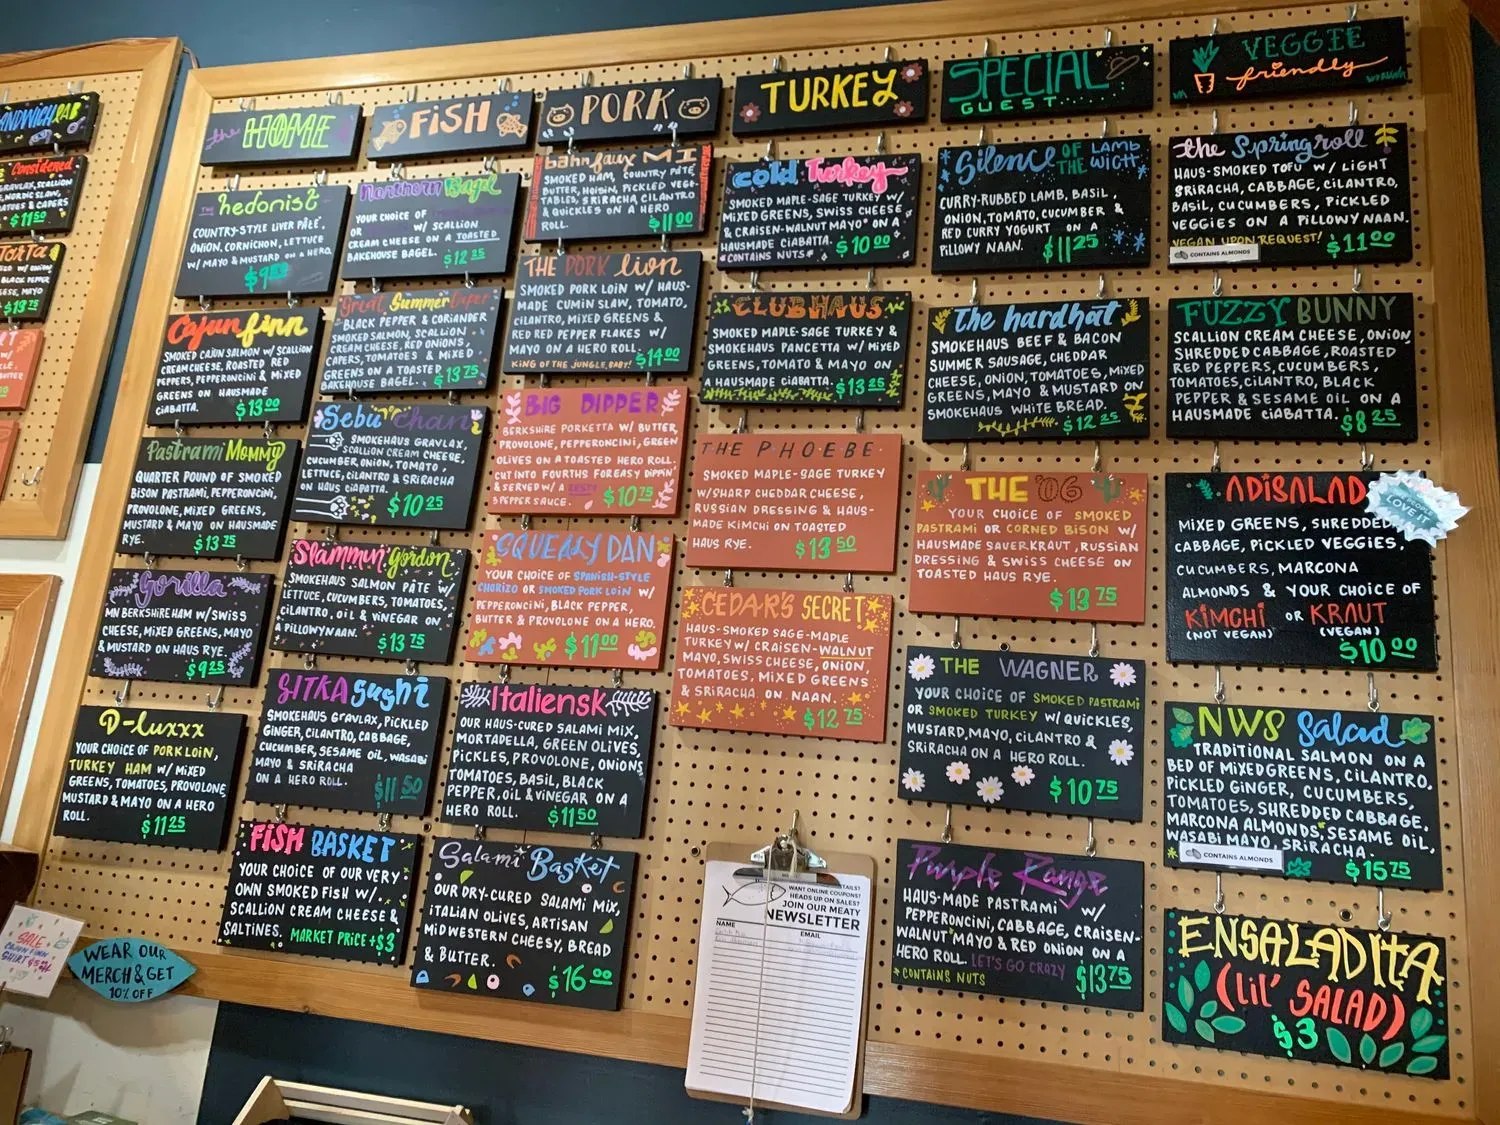 SANDWICH LAB
$11 50
$13 75
the HOME
THE hedonist
COUNTRY-STYLE LIVER PÂTÉ,
ONION, CORNICHON, LETTUCE
W/ MAYO & MUSTARD ON A HERO.
Cajun finn
SMOKED CAJUN SALMON W/ SCALLION
CREAM CHEESE, ROASTED RED
PEPPERS, PEPPERONCINI & MIXED
GREENS ON HAUSMADE
CIABATTA. $13 00
Pastrami Mommy
QUARTER POUND OF SMOKED
BISON PASTRAMI, PEPPERONCINI,
PROVOLONE, MIXED GREENS,
MUSTARD & MAYO ON HAUSMADE
RYE. $13 75
Gorilla
MN BERKSHIRE HAM W/ SWISS
CHEESE, MIXED GREENS, MAYO
& MUSTARD ON HAUS RYE.
$9 25
D-luxxx
YOUR CHOICE OF PORK LOIN,
TURKEY HAM W/ MIXED
GREENS, TOMATOES, PROVOLONE,
MUSTARD & MAYO ON A HERO
ROLL. $11 25
FISH
Northern Bagel
YOUR CHOICE OF
OR W/ SCALLION
CREAM CHEESE ON A TOASTED
BAKEHOUSE BAGEL. $12 25
Great Summer
BLACK PEPPER & CORIANDER
SMOKED SALMON, SCALLION
CREAM CHEESE, RED ONIONS,
CAPERS, TOMATOES & MIXED
GREENS ON A TOASTED
BAKEHOUSE BAGEL. $13 75
Sebu Chan
SMOKEHAUS GRAVLAX,
SCALLION CREAM CHEESE,
CUCUMBER, ONION, TOMATO,
LETTUCE, CILANTRO & SRIRACHA
ON HAUS CIABATTA.
$10 25
Slammin' Gordon
SMOKEHAUS SALMON PÂTÉ W/
LETTUCE, CUCUMBERS, TOMATOES,
CILANTRO, OIL & VINEGAR ON
A PILLOWY NAAN. $13 75
SITKA Sushi
SMOKEHAUS GRAVLAX, PICKLED
GINGER, CILANTRO, CABBAGE,
CUCUMBER, SESAME OIL, WASABI
MAYO & SRIRACHA
ON A HERO ROLL. $11 50
FISH BASKET
YOUR CHOICE OF OUR VERY
OWN SMOKED FISH W/
SCALLION CREAM CHEESE &
SALTINES. MARKET PRICE + $3
PORK
bahn faux MI
SMOKED HAM, COUNTRY PÂTÉ,
BUTTER, HOISIN, PICKLED VEGE-
TABLES, SRIRACHA, CILANTRO
& QUICKLES ON A HERO
ROLL. $11 00
THE PORK lion
SMOKED PORK LOIN W/ HAUS-
MADE CUMIN SLAW, TOMATO,
CILANTRO, MIXED GREENS &
RED RED PEPPER FLAKES W/
MAYO ON A HERO ROLL.
KING OF THE JUNGLE, BABY! $14 00
BIG DIPPER
BERKSHIRE PORKETTA W/ BUTTER,
PROVOLONE, PEPPERONCINI, GREEN
OLIVES ON A TOASTED HERO ROLL.
CUT INTO FOURTHS FOR EASY DIPPIN'
& SERVED W/ A ZESTY
3 PEPPER SAUCE. $10 75
SQUEALY DAN
YOUR CHOICE OF SPANISH-STYLE
CHORIZO OR SMOKED PORK LOIN W/
PEPPERONCINI, BLACK PEPPER,
BUTTER & PROVOLONE ON A HERO.
$11 00
Italiensk
OUR HAUS-CURED SALAMI MIX,
MORTADELLA, GREEN OLIVES,
PICKLES, PROVOLONE, ONIONS
TOMATOES, BASIL, BLACK
PEPPER, OIL & VINEGAR ON A
HERO ROLL. $11 50
Salami Basket
OUR DRY-CURED SALAMI MIX,
ITALIAN OLIVES, ARTISAN
MIDWESTERN CHEESY, BREAD
& BUTTER.
$16 00
TURKEY
cold Turkey
SMOKED MAPLE-SAGE TURKEY W/
MIXED GREENS, SWISS CHEESE
& CRAISEN-WALNUT MAYO* ON A
HAUSMADE CIABATTA.
*CONTAINS NUTS* $10 00
CLUBHAUS
SMOKED MAPLE-SAGE TURKEY &
SMOKEHAUS PANCETTA W/ MIXED
GREENS, TOMATO & MAYO ON
A HAUSMADE CIABATTA. $13 25
THE PHOEBE
SMOKED MAPLE-SAGE TURKEY
W/ SHARP CHEDDAR CHEESE,
RUSSIAN DRESSING & HAUS-
MADE KIMCHI ON TOASTED
HAUS RYE. $13 50
CEDAR'S SECRET
HAUS-SMOKED SAGE-MAPLE
TURKEY W/ CRAISEN-WALNUT
MAYO, SWISS CHEESE, ONION,
TOMATOES, MIXED GREENS
& SRIRACHA ON NAAN.
$12 75
SPECIAL
GUEST
Silence OF THE LAMB WICH
CURRY-RUBBED LAMB, BASIL,
ONION, TOMATO, CUCUMBER &
RED CURRY YOGURT ON A
PILLOWY NAAN. $11 25
The hardhat
SMOKEHAUS BEEF & BACON
SUMMER SAUSAGE, CHEDDAR
CHEESE, ONION, TOMATOES, MIXED
GREENS, MAYO & MUSTARD ON
SMOKEHAUS WHITE BREAD.
$12 25
THE '06
YOUR CHOICE OF SMOKED
PASTRAMI OR CORNED BISON W/
HAUSMADE SAUERKRAUT, RUSSIAN
DRESSING & SWISS CHEESE ON
TOASTED HAUS RYE.
$13 75
THE WAGNER
YOUR CHOICE OF SMOKED PASTRAMI
OR SMOKED TURKEY W/ QUICKLES,
MUSTARD, MAYO, CILANTRO &
SRIRACHA ON A HERO ROLL.
$10 75
Purple Range
HAUS-MADE PASTRAMI W/
PEPPERONCINI, CABBAGE, CRAISEN-
WALNUT* MAYO & RED ONION ON A
HERO ROLL. LET'S GO CRAZY
*CONTAINS NUTS $13 75
VEGGIE
friendly
the Springroll
HAUS-SMOKED TOFU W/ LIGHT
SRIRACHA, CABBAGE, CILANTRO,
BASIL, CUCUMBERS, PICKLED
VEGGIES ON A PILLOWY NAAN.
VEGAN UPON REQUEST! $11 00
CONTAINS ALMONDS
FUZZY BUNNY
SCALLION CREAM CHEESE, ONION,
SHREDDED CABBAGE, ROASTED
RED PEPPERS, CUCUMBERS,
TOMATOES, CILANTRO, BLACK
PEPPER & SESAME OIL ON A
HAUSMADE CIABATTA. $8 25
ADISALAD
PEOPLE
LOVE IT
MIXED GREENS, SHREDDED
CABBAGE, PICKLED VEGGIES,
CUCUMBERS, MARCONA
ALMONDS & YOUR CHOICE OF
KIMCHI OR KRAUT
(NOT VEGAN) (VEGAN)
$10 00
NWS Salad
TRADITIONAL SALMON ON A
BED OF MIXED GREENS, CILANTRO,
PICKLED GINGER, CUCUMBERS,
TOMATOES, SHREDDED CABBAGE,
MARCONA ALMONDS, SESAME OIL,
WASABI MAYO, SRIRACHA.
CONTAINS ALMONDS $15 75
ENSALADITA
(LIL' SALAD)
$3
WANT ONLINE COUPONS?
HEADS UP ON SALES?
JOIN OUR MEATY
NEWSLETTER
NAME EMAIL
SALE
CAJUN FINN
SHIRT
WEAR OUR
MERCH & GET
10% OFF